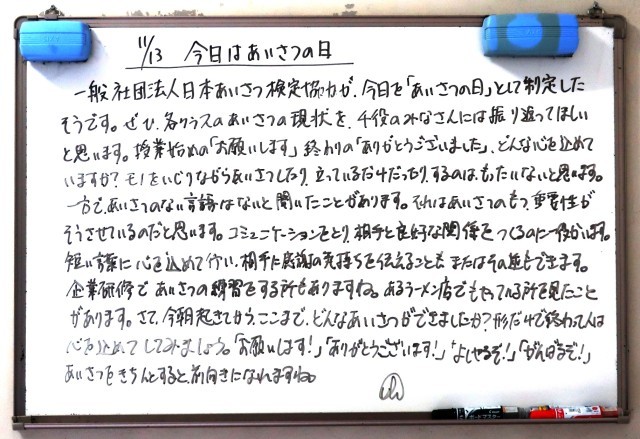 11/13 今日はあいさつの日
一般社団法人日本あいさつ検定協会が、今日を「あいさつの日」として制定した
そうです。ぜひ、各クラスのあいさつの現状を、千役のみなさんには振り返ってほしい
と思います。授業始めの「お願いします」終わりの「ありがとうございました」、どんな心を込めて
いますか？モノをいじりながらあいさつしたり、立っているだけだったり、するのは、もったいないと思います。
一方で、あいさつのない言語はないと聞いたことがあります。それはあいさつのもつ重要性が
そうさせているのだと思います。コミュニケーションをとり、相手と良好な関係をつくるのに一役かいます。
短い言葉に心を込めて行い、相手に感謝の気持ちを伝えることも、またはその逆もできます。
企業研修であいさつの練習をする所もありますね。あるラーメン店でもやっている所を見たこと
があります。さて、今朝起きてから、ここまで、どんなあいさつができましたか？形だけで終わって人は
心を込めてしてみましょう。「お願いします！」「ありがとうございます！」「よしやるぞ！」「がんばるぞ！」
あいさつをきちんとすると、前向きになれますね。
ボードマスター